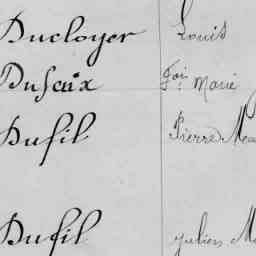 Ducloyer Louis
Dusceux Foi. Marie
Dufil Pierre
Dufil Julien